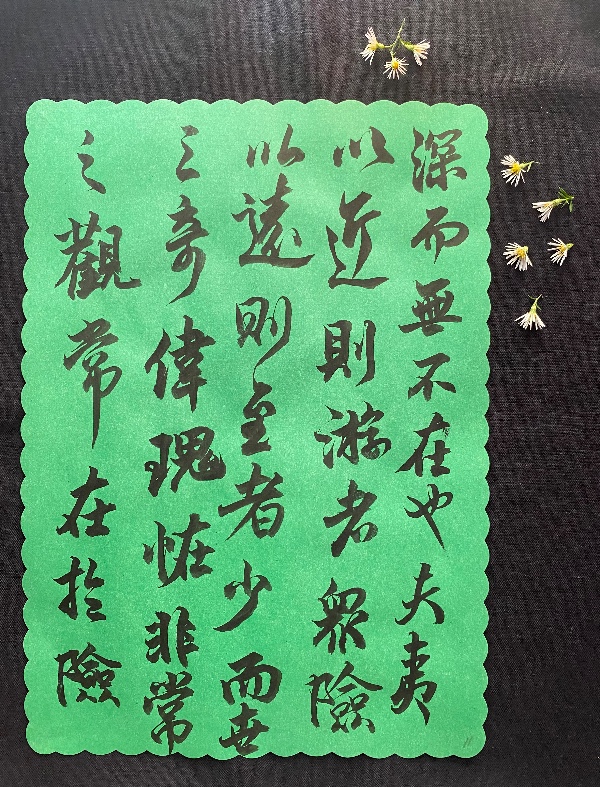 深而無不在也夫夷
以近則游者眾險
以遠則至者少而世
之奇偉瑰怪非常
之觀常在於險